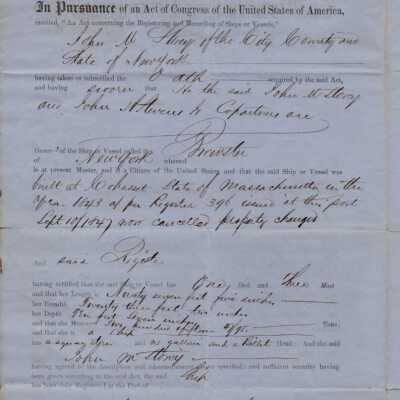 In Pursuance of an Act of Congress of the United States of America,
entitled, "An Act concerning the Registering and Recording of Ships or Vessels,"
John M Story of the City County and
State of New York.
having taken or subscribed the Oath required by the said Act,
and having sworn that He the said John M Story
and John N Stevens Jr Copartners are
Owner of the Ship or Vessel called the Brewster
of New York whereof
is at present Master, and is a Citizen of the United States and that the said Ship or Vessel was
built at Cohasset State of Massachusetts in the
Year 1843 as per Register 396 issued at this port
Sept 10/1847 now cancelled property changed
And said Register
having certified that the said Ship or Vessel has One Deck and three Mast
and that her Length is Ninety seven feet five inches
her Breadth Twenty three feet two inches
her Depth feet seven inches
and that she Measures Two hundred fifteen /95 Tons;
that she is a
has a square stern no galleries and a Head: And the said
John M Story
having agreed to the description and admeasurement above specified; and sufficient security having
been given according to the said Act, the said Ship
has been duly Registered at the Port of